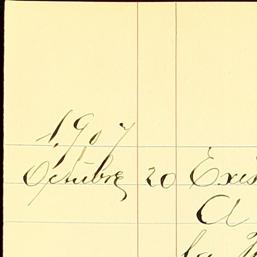 1907
Octubre 20 Exis
A
la